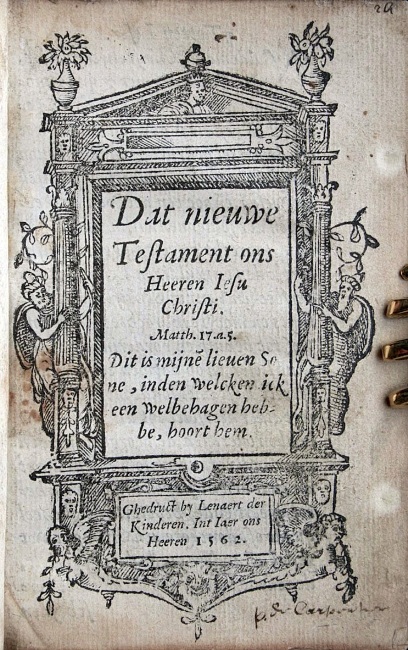 Dat nieuwe
Teſtament ons
Heeren Ieſu
Chriſti.
Matth. 17.a.5.
Dit is mijnē lieuen So
ne, inden welcken ick
een welbehagen heb-
be, hoort hem.
Ghedruct by Lenaert der
Kinderen. Int Iaer ons
Heeren 1562.